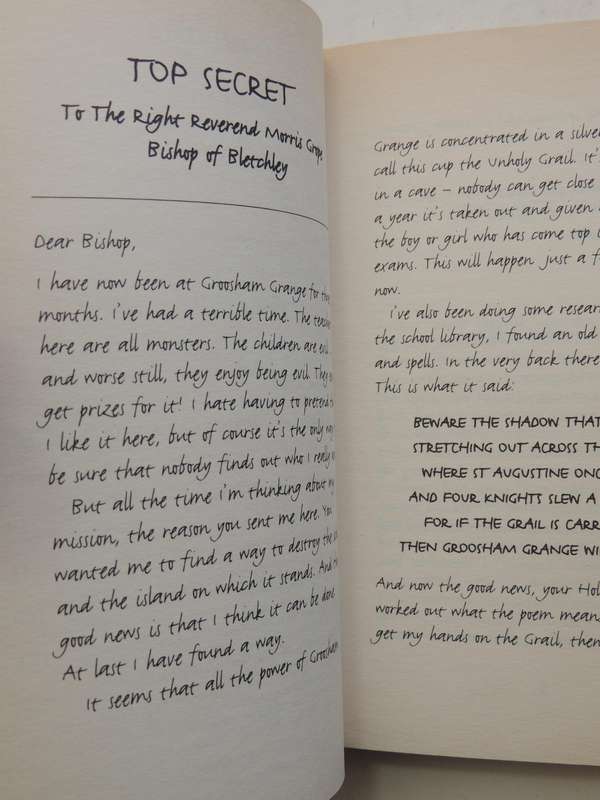 TOP SECRET
To The Right Reverend Morris Grope
Bishop of Bletchley
Dear Bishop,
I have now been at Groosham Grange for
months. I've had a terrible time. The
here are all monsters. The children are
and worse still, they enjoy being evil. They
get prizes for it! I hate having to pretend
I like it here, but of course it's the only
be sure that nobody finds out who I really
But all the time I'm thinking about my
mission, the reason you sent me here. You
wanted me to find a way to destroy the
and the island on which it stands. And
good news is that I think it can be done.
At last I have found a way.
It seems that all the power of Groosham
Grange is concentrated in a silver
call this cup the Unholy Grail. It's
in a cave – nobody can get close
a year it's taken out and given
the boy or girl who has come top
exams. This will happen just a
now.
I've also been doing some
the school library, I found an old
and spells. In the very back there
This is what it said:
BEWARE THE SHADOW THAT
STRETCHING OUT ACROSS
WHERE ST AUGUSTINE
AND FOUR KNIGHTS SLEW A
FOR IF THE GRAIL IS
THEN GROOSHAM GRANGE
And now the good news, your
worked out what the poem
get my hands on the Grail,